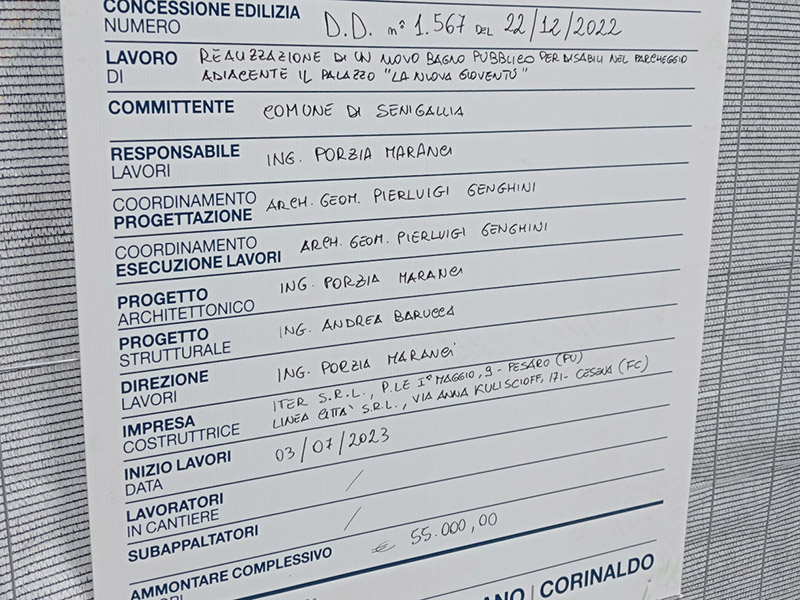 CONCESSIONE EDILIZIA
NUMERO
D.D. n° 1.567 DEL 22/12/2022
LAVORO
DI
REALIZZAZIONE DI UN NUOVO BAGNO PUBBLICO PER DISABILI NEL PARCHEGGIO
ADIACENTE IL PALAZZO "LA NUOVA GIOVENTÙ"
COMMITTENTE COMUNE DI SENIGALLIA
RESPONSABILE
LAVORI
ING. PORZIA MARANCI
COORDINAMENTO
PROGETTAZIONE
ARCH. GEOM. PIERLUIGI GENGHINI
COORDINAMENTO
ESECUZIONE LAVORI
ARCH. GEOM. PIERLUIGI GENGHINI
PROGETTO
ARCHITETTONICO
ING. PORZIA MARANCI
PROGETTO
STRUTTURALE
ING. ANDREA BARUCCA
DIREZIONE
LAVORI
ING. PORZIA MARANCI
IMPRESA
COSTRUTTRICE
ITER S.R.L., P.LE I° MAGGIO, 9 - PESARO (PU)
LINEA CITTÀ S.R.L., VIA ANNA KULISCIOFF, 171 - CESENA (FC)
INIZIO LAVORI
DATA
03/07/2023
LAVORATORI
IN CANTIERE
/
SUBAPPALTATORI /
AMMONTARE COMPLESSIVO € 55.000,00
CORINALDO